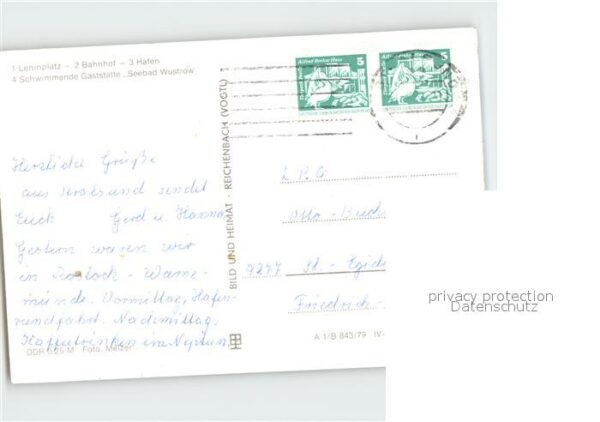 1 Leninplatz – 2 Bahnhof – 3 Hafen
4 Schwimmende Gaststätte „Seebad Wustrow"
Herzliche Grüße
aus Stralsund sendet
Euch Gerd u. Hanna
Gestern waren wir
in Rostock - Warne-
münde. Vormittag, Hafen-
rundfahrt. Nachmittag,
Kaffeetrinken im Neptun,
DDR 0,25 M Foto: Metzer
BILD UND HEIMAT · REICHENBACH (VOGTL)
Alfred Brehm Haus 5
5
Otto - Buch
9277 St. - Egidi
Friedrich -
A 1/B 843/79 IV-
privacy protection
Datenschutz